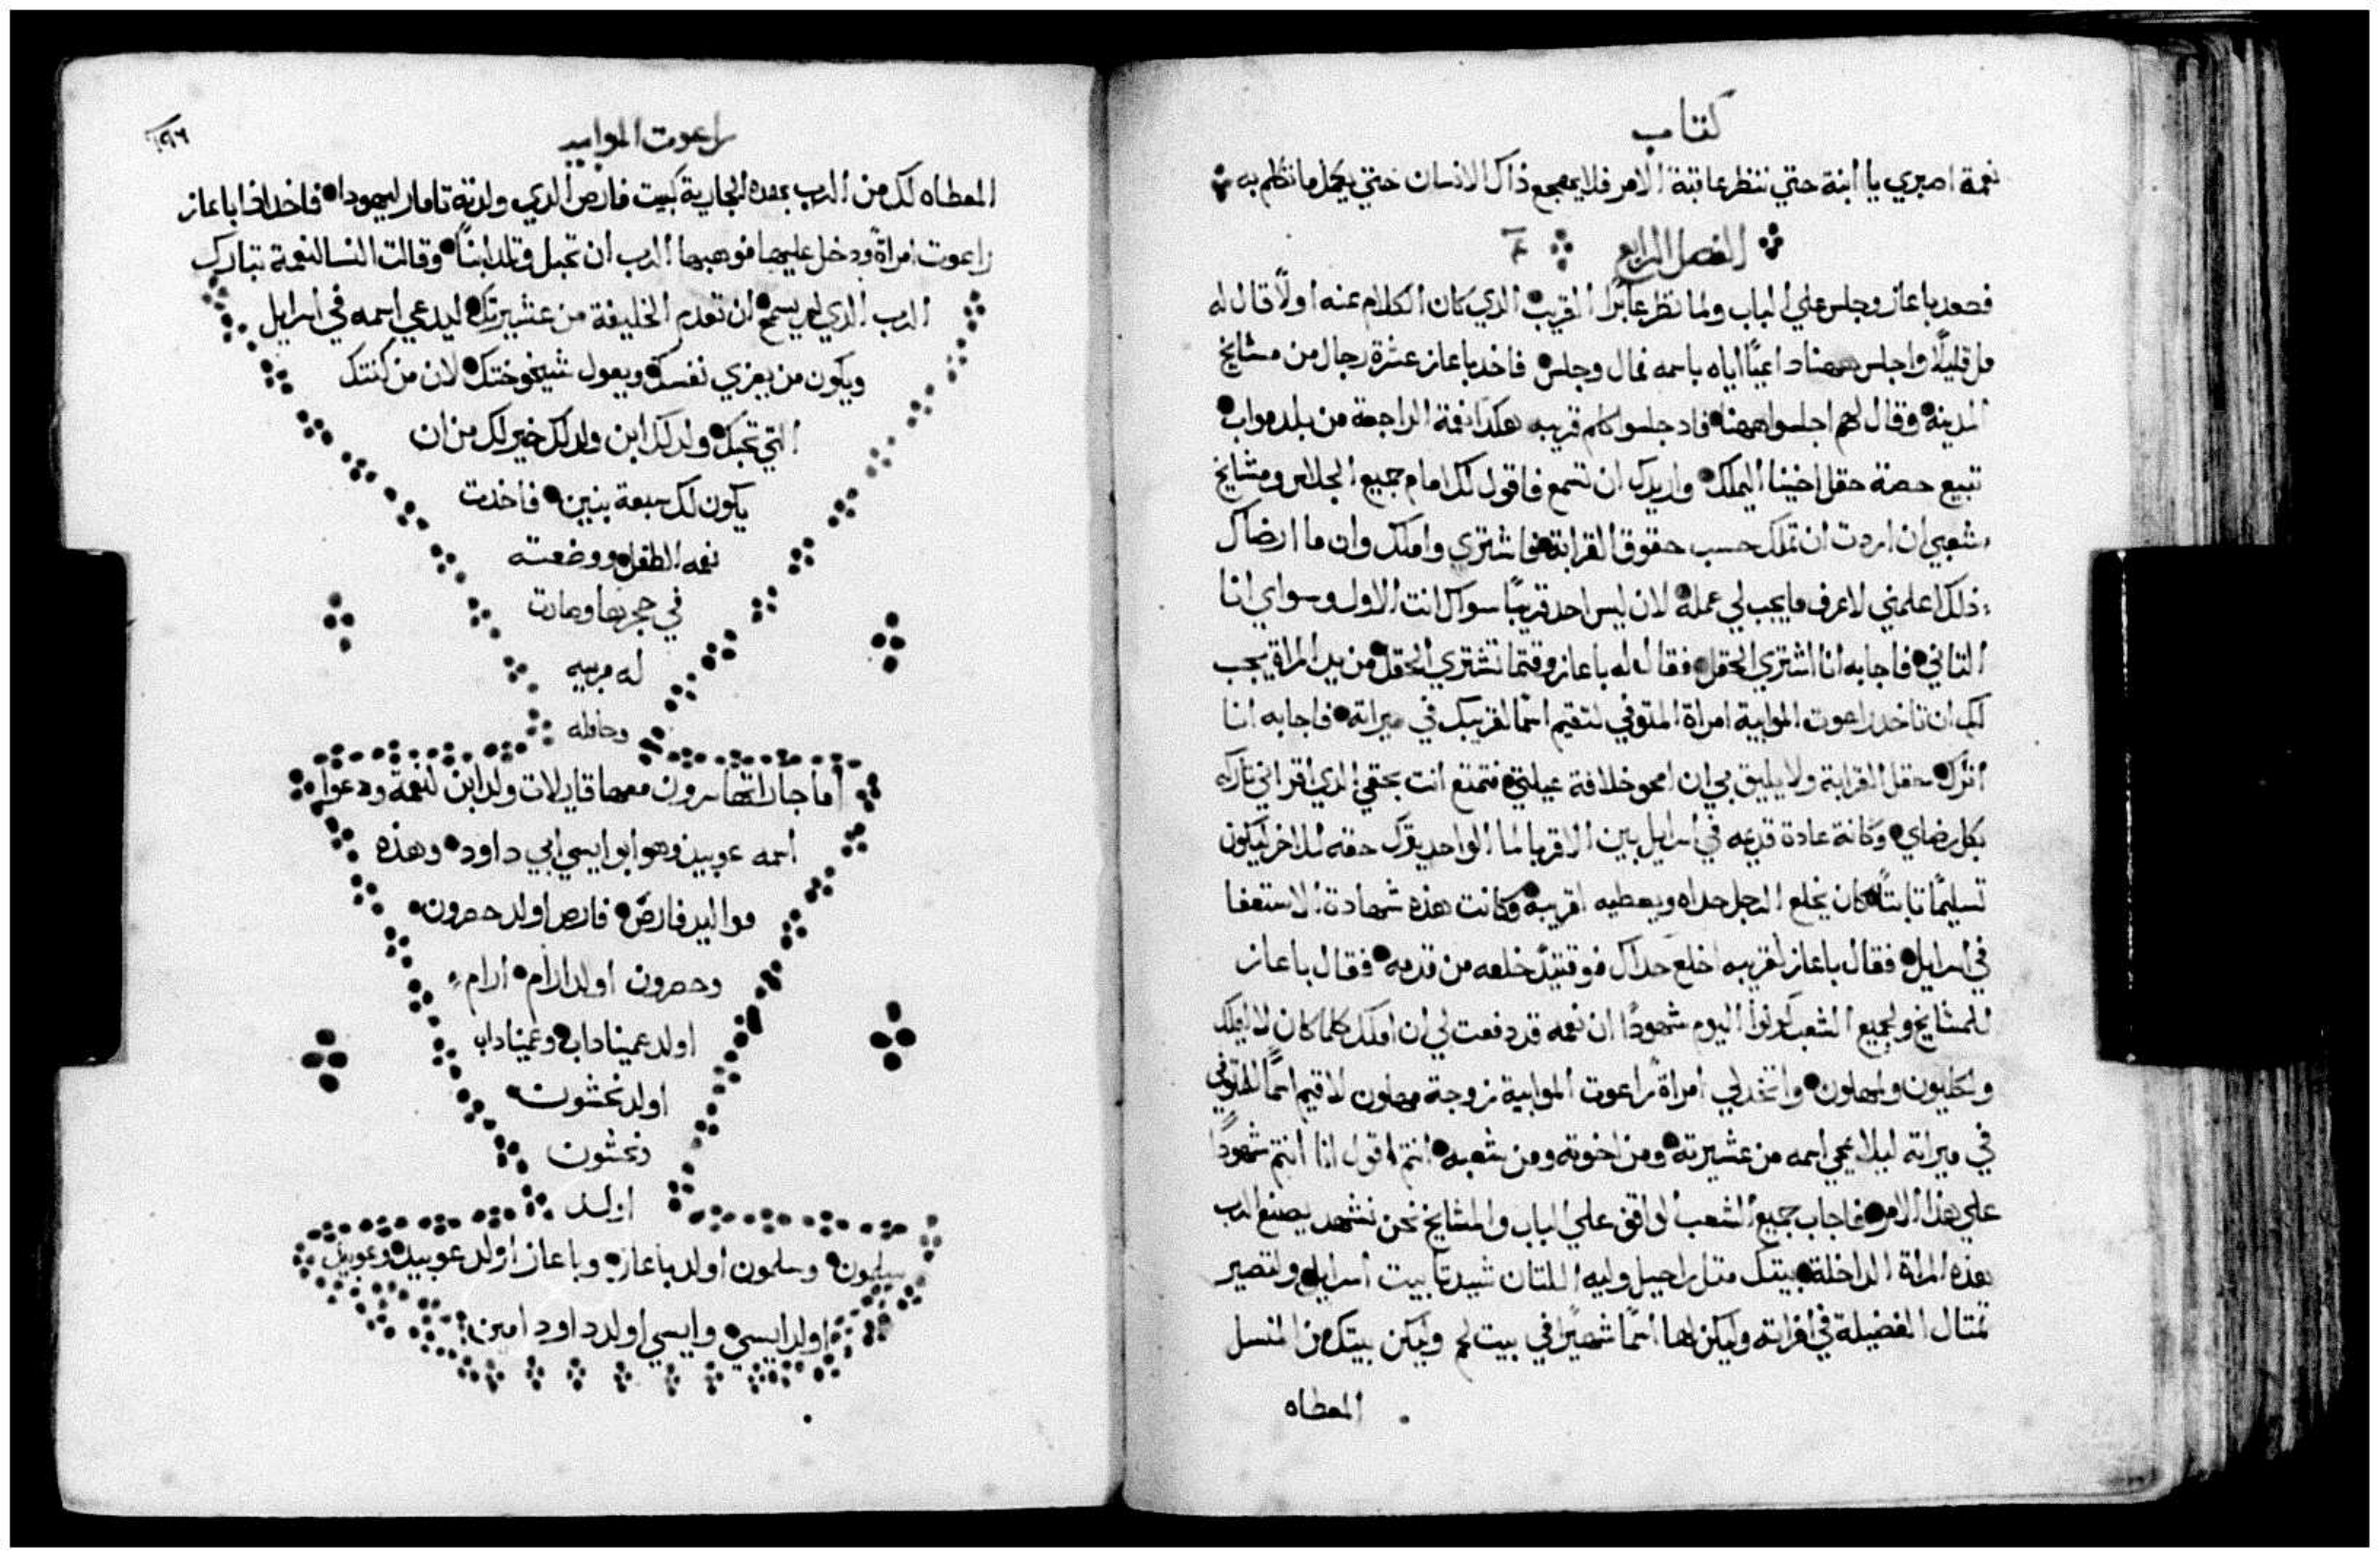 كتاب
نعمة اصبري يا ابنة حتي ننظر عاقبة الامر فلا يهجع ذاك الانسان حتي يكمل ما تكلم به
الفصل الرابع ٤
فصعد باعاز وجلس علي الباب ولما نظر عابرًا القريب الذي كان الكلام عنه اولًا قال له
مل قليلًا واجلس ههنا داعيًا اياه باسمه فمال وجلس فاخد باعاز عشرة رجال من مشايخ
المدينة وقال لهم اجلسوا ههنا فاد جلسوا كلم قريبه هكدا نعمة الراجعة من بلد مواب
تبيع حصة حقل اخينا اليملك واريدك ان تسمع فاقول لك امام جميع الجلاس ومشايخ
شعبي ان اردت ان تملك حسب حقوق القرابة فاشتري واملك وان ما ارضاك
ذلك اعلمني لاعرف ما يجب لي عمله لان ليس احد قريبًا سواك انت الاول وسواي انا
التاني فاجابه انا اشتري الحقل فقال له باعاز وقتما تشتري الحقل من يد المراة يجب
لك ان تاخد راعوت الموابية امراة المتوفي لتقيم اسمًا لقريبك في ميراته فاجابه انا
اترك حقل القرابة ولا يليق بي ان امحو خلافة عيلتي فتمتع انت بحقي الدي اقر اني تاركه
بكل رضاي وكانة عادة قديمه في اسرايل بين الاقربا اما الواحد يترك حقه للاخر ليكون
تسليمًا تابتًا كان يخلع الرجل حداه ويعطيه لقريبه وكانت هذه شهادة الاستعفا
في اسرايل فقال باعاز لقريبه اخلع حداك فوقتيدٍ خلعه من قدمه فقال باعاز
للمشايخ ولجميع الشعب كونوا اليوم شهودًا ان نعمه قد دفعت لي ان املك كلما كان لاليملك
ولكليون ولمهلون واتخد لي امراةً راعوت الموابية زوجة مهلون لاقيم اسمًا للمتوفي
في ميراته ليلا يمحي اسمه من عشيرته ومن اخوته ومن شعبه انتم اقول انا انتم شهودًا
علي هذا الامر فاجاب جميع الشعب الواقف علي الباب والمشايخ نحن نشهد يصنع الرب
بهذه المراة الداخلة بيتك متل راحيل وليه اللتان شيدتا بيت اسرايل ولتصير
تمتال الفضيلة في افراته وليكن لها اسمًا شهيرًا في بيت لحم وليكن بيتك من النسل
المعطاه
راعوت الموابيه
١٩٦
المعطاه لك من الرب بهده الجارية كبيت فارص الدي ولدته تامار ليهودا فاخد ادا باعاز
راعوت امراةً ودخل عليها فوهبها الرب ان تحبل وتلد ابنًا وقالت النسا لنعمة تبارك
الرب الدي لم يسمح ان تعدم الخليفة من عشيرتك ليدعي اسمه في اسرايل
ويكون من يعزي نفسك ويعول شيخوختك لان من كنتك
التي تحبك ولد لك ابن ولد لك خير لك من ان
يكون لك سبعة بنين فاخدت
نعمه الطفل ووضعته
في حجرها وصارت
له مربيه
وحامله
اما جاراتها سرون معها قايلات ولد ابن لنعمة ودعوا
اسمه عوبيد وهو ابو ايسي ابي داود وهذه
مواليد فارص فارص اولد حصرون
وحصرون اولد ارام ارام
اولد عميناداب وعميناداب
اولد نحشون
ونحشون
اولد
سلمون وسلمون اولد باعاز وباعاز اولد عوبيد وعوبيد
اولد ايسي وايسي اولد داود امين